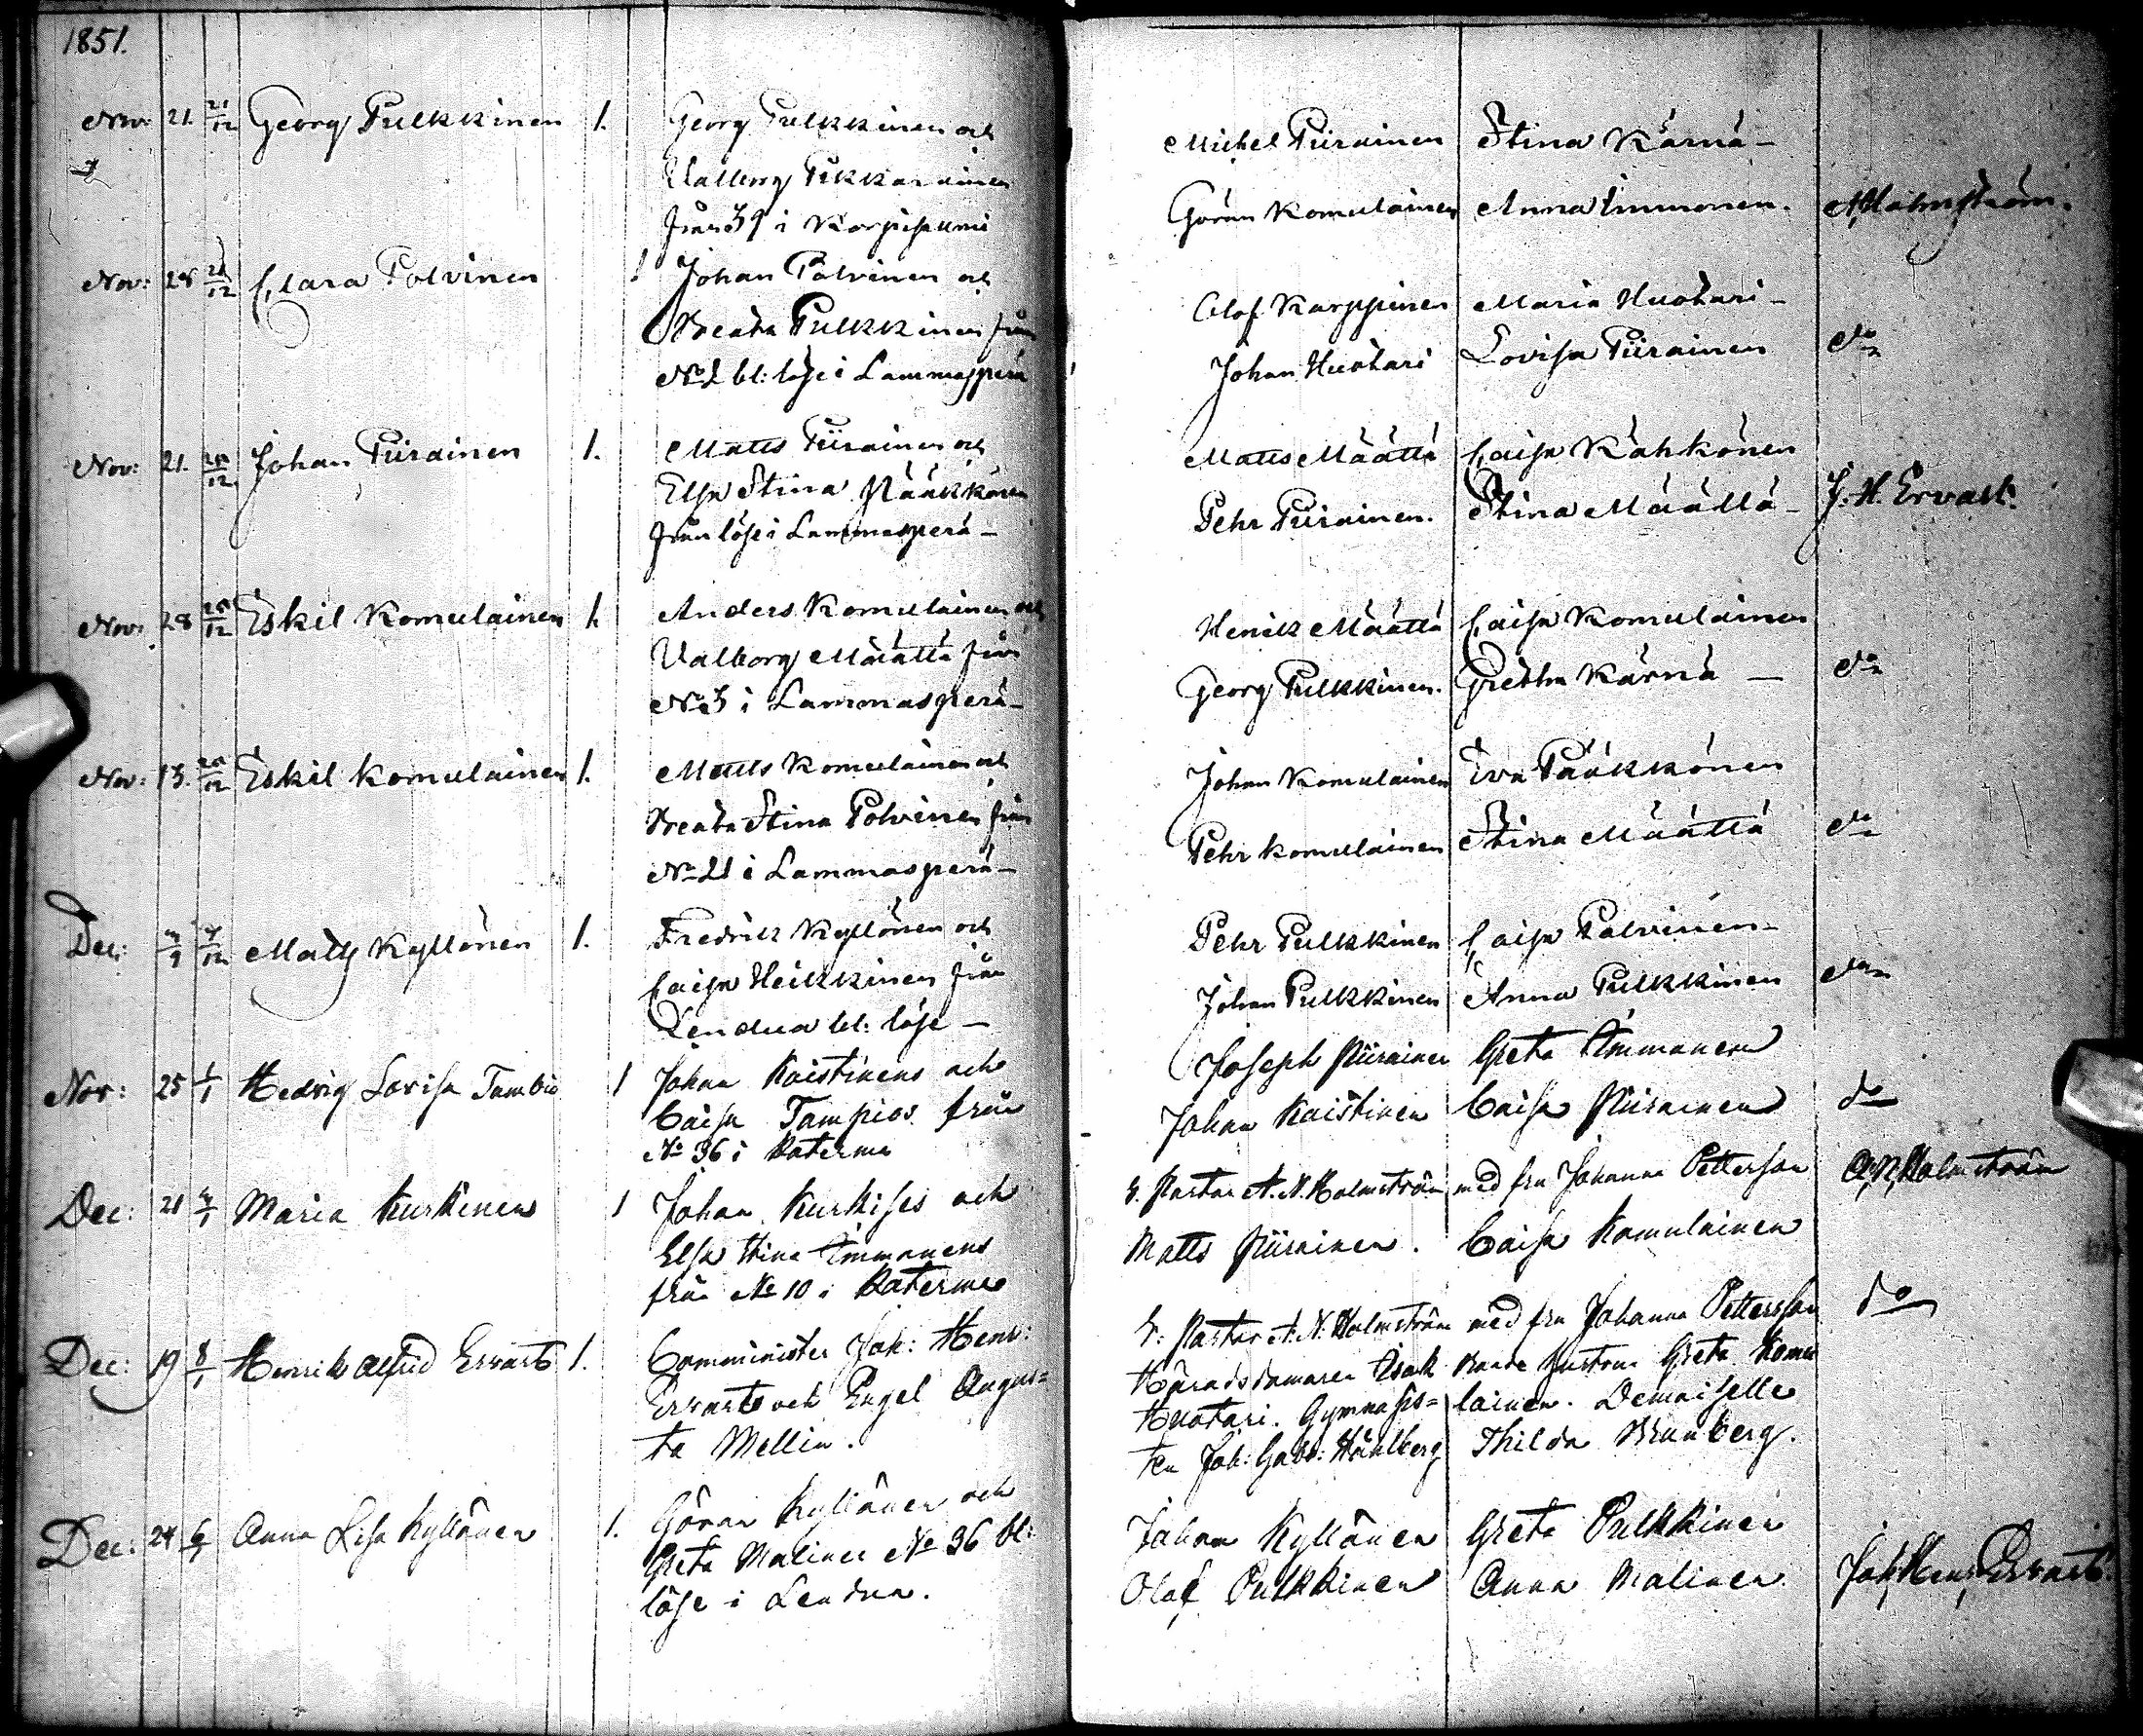 1851.
Nov: 21. 21/12 Georg Pulkkinen 1. Georg Pulkkinen och
Valborg Pikkarainen
från 39 i Korpisalmi
Nov: 28 21/12 Clara Polvinen 1 Johan Polvinen och
Breata Pulkkinen från
No 2 bl: löse i Lammasperä
Nov: 21. 28/12 Johan Piirainen 1. Matts Piirainen och
Elsa Stina Pääkkönen
från löse i Lammasperä -
Nov: 28 28/12 Eskil Komulainen 1. Anders Komulainen och
Valborg Määttä från
No 3 i Lammasperä -
Nov: 13. 28/12 Eskil Komulainen 1. Matts Komulainen och
Breata Stina Polvinen från
No 21 i Lammasperä -
Dec: 7/12 Matts Kyllönen 1. Fredrik Kyllönen och
Caisa Heikkinen från
Lendua bl: löse -
Nov: 25 1/1 Hedvig Lovisa Tambio 1 Johan Kaistinens och
Caisa Tampios från
No 36 i Katerma
Dec: 21 4/1 Maria Kurkinen 1 Johan Kurkises och
Elsa Stina Immonens
från No 10 i Katerma
Dec: 19 8/1 Henrik Alfrid Ervast 1. Comminister Joh: Henr:
Ervast och Engel Augus=
ta Mellin.
Dec: 24 6/1 Anna Lisa Kyllönen 1. Göran Kyllönen och
Greta Malinen No 36 bl:
löse i Lendua.
Michel Piirainen Stina Kärnä -
Göran Komulainen Anna Immonen. A. Holmström.
Olof Karppinen Maria Huotari -
Johan Huotari Lovisa Piirainen do
Matts Määttä Caisa Kähkönen
Pehr Piirainen. Stina Määttä - J. H. Ervast.
Henrik Määttä Caisa Komulainen
Georg Pulkkinen. Gretha Kärnä - do
Johan Komulainen Eva Pääkkönen
Pehr Komulainen Stina Määttä do
Pehr Pulkkinen Caisa Polvinen -
Johan Pulkkinen Anna Pulkkinen do
Joseph Piirainen Greta Immonen
Johan Kaistinen Caisa Piirainen do
V. Pastor A. N. Holmström med fru Johanna Petterson A, N, Holmström
Matts Piirainen. Caisa Komulainen
V: Pastor A. N: Holmström med fru Johanna Pettersson do
Häradsdomaren Isak Bonde hustrun Greta Komu
Huotari. Gymnasis= lainen. Demoiselle
ten Joh: Gabr: Ståhlberg Thilda Brunberg.
Johan Kyllönen Greta Pulkkinen
Olof Pulkkinen Anna Malinen. Joh, Henr, Ervast.